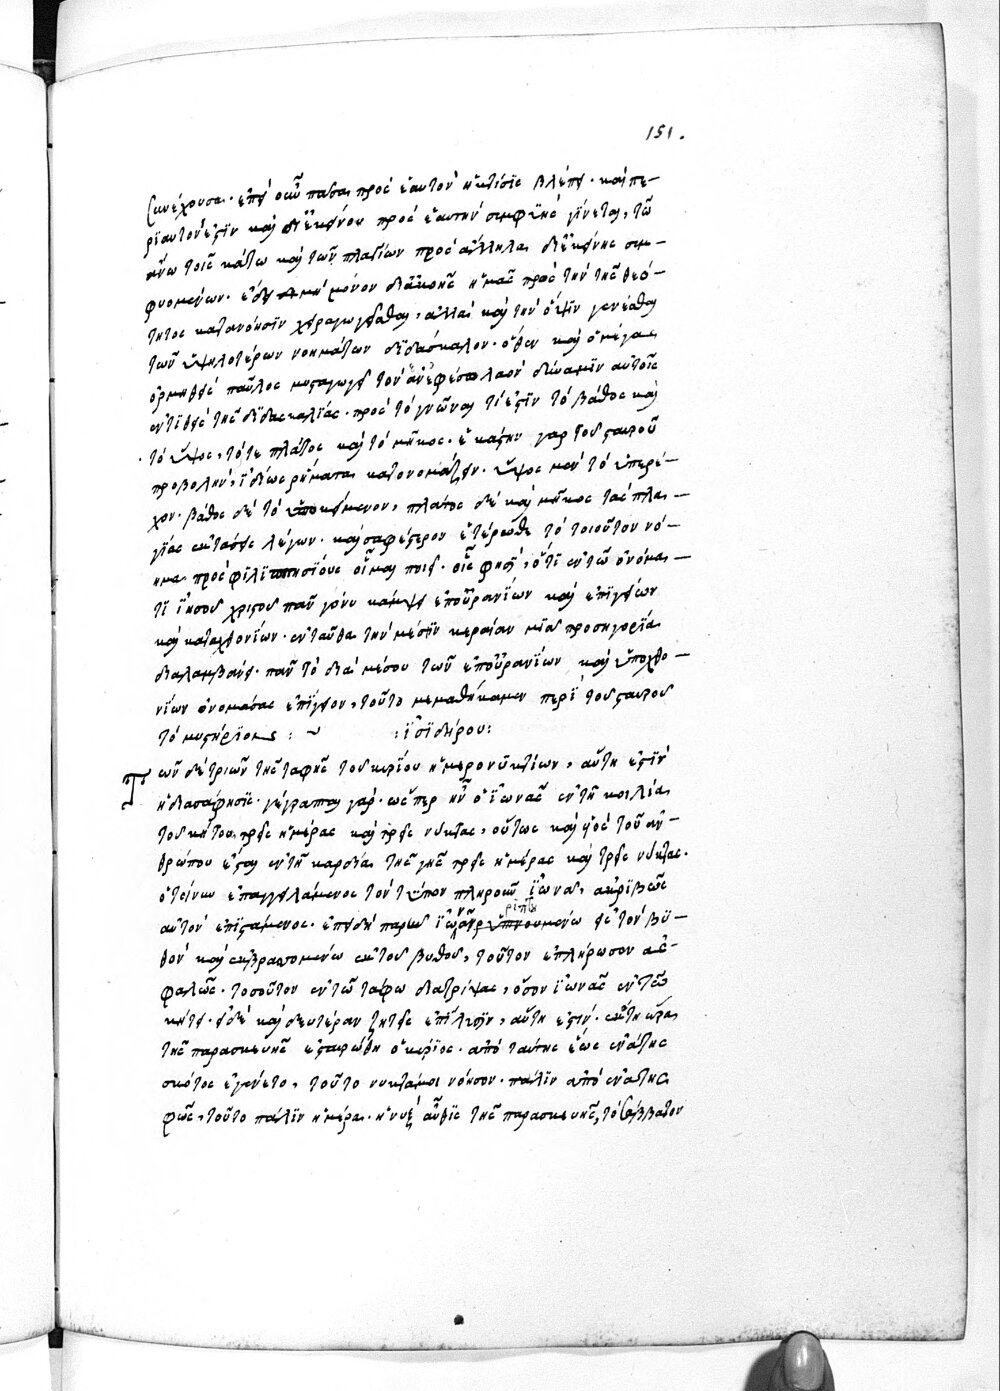 151.
συνέχουσα. ἐπεὶ οὖν πᾶσα πρὸς ἑαυτὸν ἡ κτίσις βλέπει. καὶ πε-
ρὶ αυτόν ἐστιν καὶ δι ἐκείνου πρὸς ἑαυτὴν συμφυὴς γίνεται, τῶν
ἄνω τοῖς κάτω καὶ τῶν πλαγίων πρὸς ἄλληλα δι ἐκείνης συμ-
φυομένων. ἔδει μὴ μόνον δι ἀκοῆς ἡμᾶς πρὸς τὴν τῆς θεό-
τητος κατανόησιν χειραγωγεῖσθαι, ἀλλὰ καὶ τὴν ὄψιν γενέσθαι
τῶν ὑψηλοτέρων νοημάτων διδάσκαλον. ὅθεν καὶ ὁ μέγας
ὁρμηθεὶς παῦλος μυσταγωγεῖ τὸν ἐν ἐφέσω λαὸν δύναμιν αὐτοῖς
ἐντιθεὶς τῆς διδασκαλίας. πρὸς τὸ γνῶναι τί ἐστιν τὸ βάθος καὶ
τὸ ὕψος, τό τε πλάτος καὶ τὸ μῆκος. ἑκάστην γὰρ τοῦ σταυροῦ
προβολὴν, ἰδίω ῥήματι κατονομάζειν. ὕψος μὲν τὸ ὑπερέ-
χον. βάθος δὲ τὸ ὑποκείμενον, πλάτος δὲ καὶ μῆκος τὰς πλα-
γίας ἐκτάσεις λέγων. καὶ σαφέστερον ἑτέρωθι τὸ τοιοῦτον νό-
ημα πρὸς φιλιππησίους οἶμαι ποιεῖ. οἷς φησὶ, ὅτι ἐν τῶ ὀνόμα-
τι ἰησοῦ χριστοῦ πᾶν γόνυ κάμψει ἐπουρανίων καὶ ἐπιγείων
καὶ καταχθονίων. ἐνταῦθα τὴν μέσην κεραίαν μία προσηγορία
διαλαμβάνει. πᾶν τὸ διὰ μέσου τῶν ἐπουρανίων καὶ ὑποχθο-
νίων ὀνομάσας ἐπίγειον, τοῦτο μεμαθήκαμεν περὶ τοῦ σταυροῦ
τὸ μυστήριον : ~ :ἰσιδώρου:
Τῶν δὲ τριῶν τῆς ταφῆς τοῦ κυρίου ἡμερονυκτίων, αὕτη ἐστὶν
ἡ διασάφησις. γέγραπται γάρ. ὥσπερ ἦν ὁ ἰωνᾶς ἐν τῆ κοιλία
τοῦ κήτους τρεῖς ἡμέρας καὶ τρεῖς νύκτας, οὕτως καὶ ὁ υἱὸς τοῦ ἀν-
θρώπου ἔσται ἐν τῆ καρδία τῆς γῆς τρεῖς ἡμέρας καὶ τρεῖς νύκτας.
ὁ τοίνυν ἐπαγγειλάμενος τὸν τύπον πληροῦν ἰωνᾶ, ἀκριβῶς
αὐτὸν ἐπιστάμενος. ἐπειδὴ παρῆν ἰωνᾶν ῥιπτουμένω εἰς τὸν βυ-
θὸν καὶ ἐκβρασσομένω ἐκ τοῦ βυθοῦ, τοῦτον ἐπλήρωσεν ἀσ-
φαλῶς. τοσοῦτον ἐν τῶ τάφω διατρίψας, ὅσον ἰωνᾶς ἐν τῶ
κήτει. εἰ δὲ καὶ δευτέραν ζητεῖς ἐπίλυσιν, αὕτη ἐστίν. ἕκτη ὥρα
τῆς παρασκευῆς ἐσταυρώθη ὁ κύριος. ἀπὸ ταύτης ἕως ἐνάτης
σκότος ἐγένετο, τοῦτο νύκτα μοι νόησον. πάλιν ἀπὸ ἐνάτης
φῶς, τοῦτο πάλιν ἡμέρα. ἡ νὺξ αὖθις τῆς παρασκευῆς, τὸ σάββατον